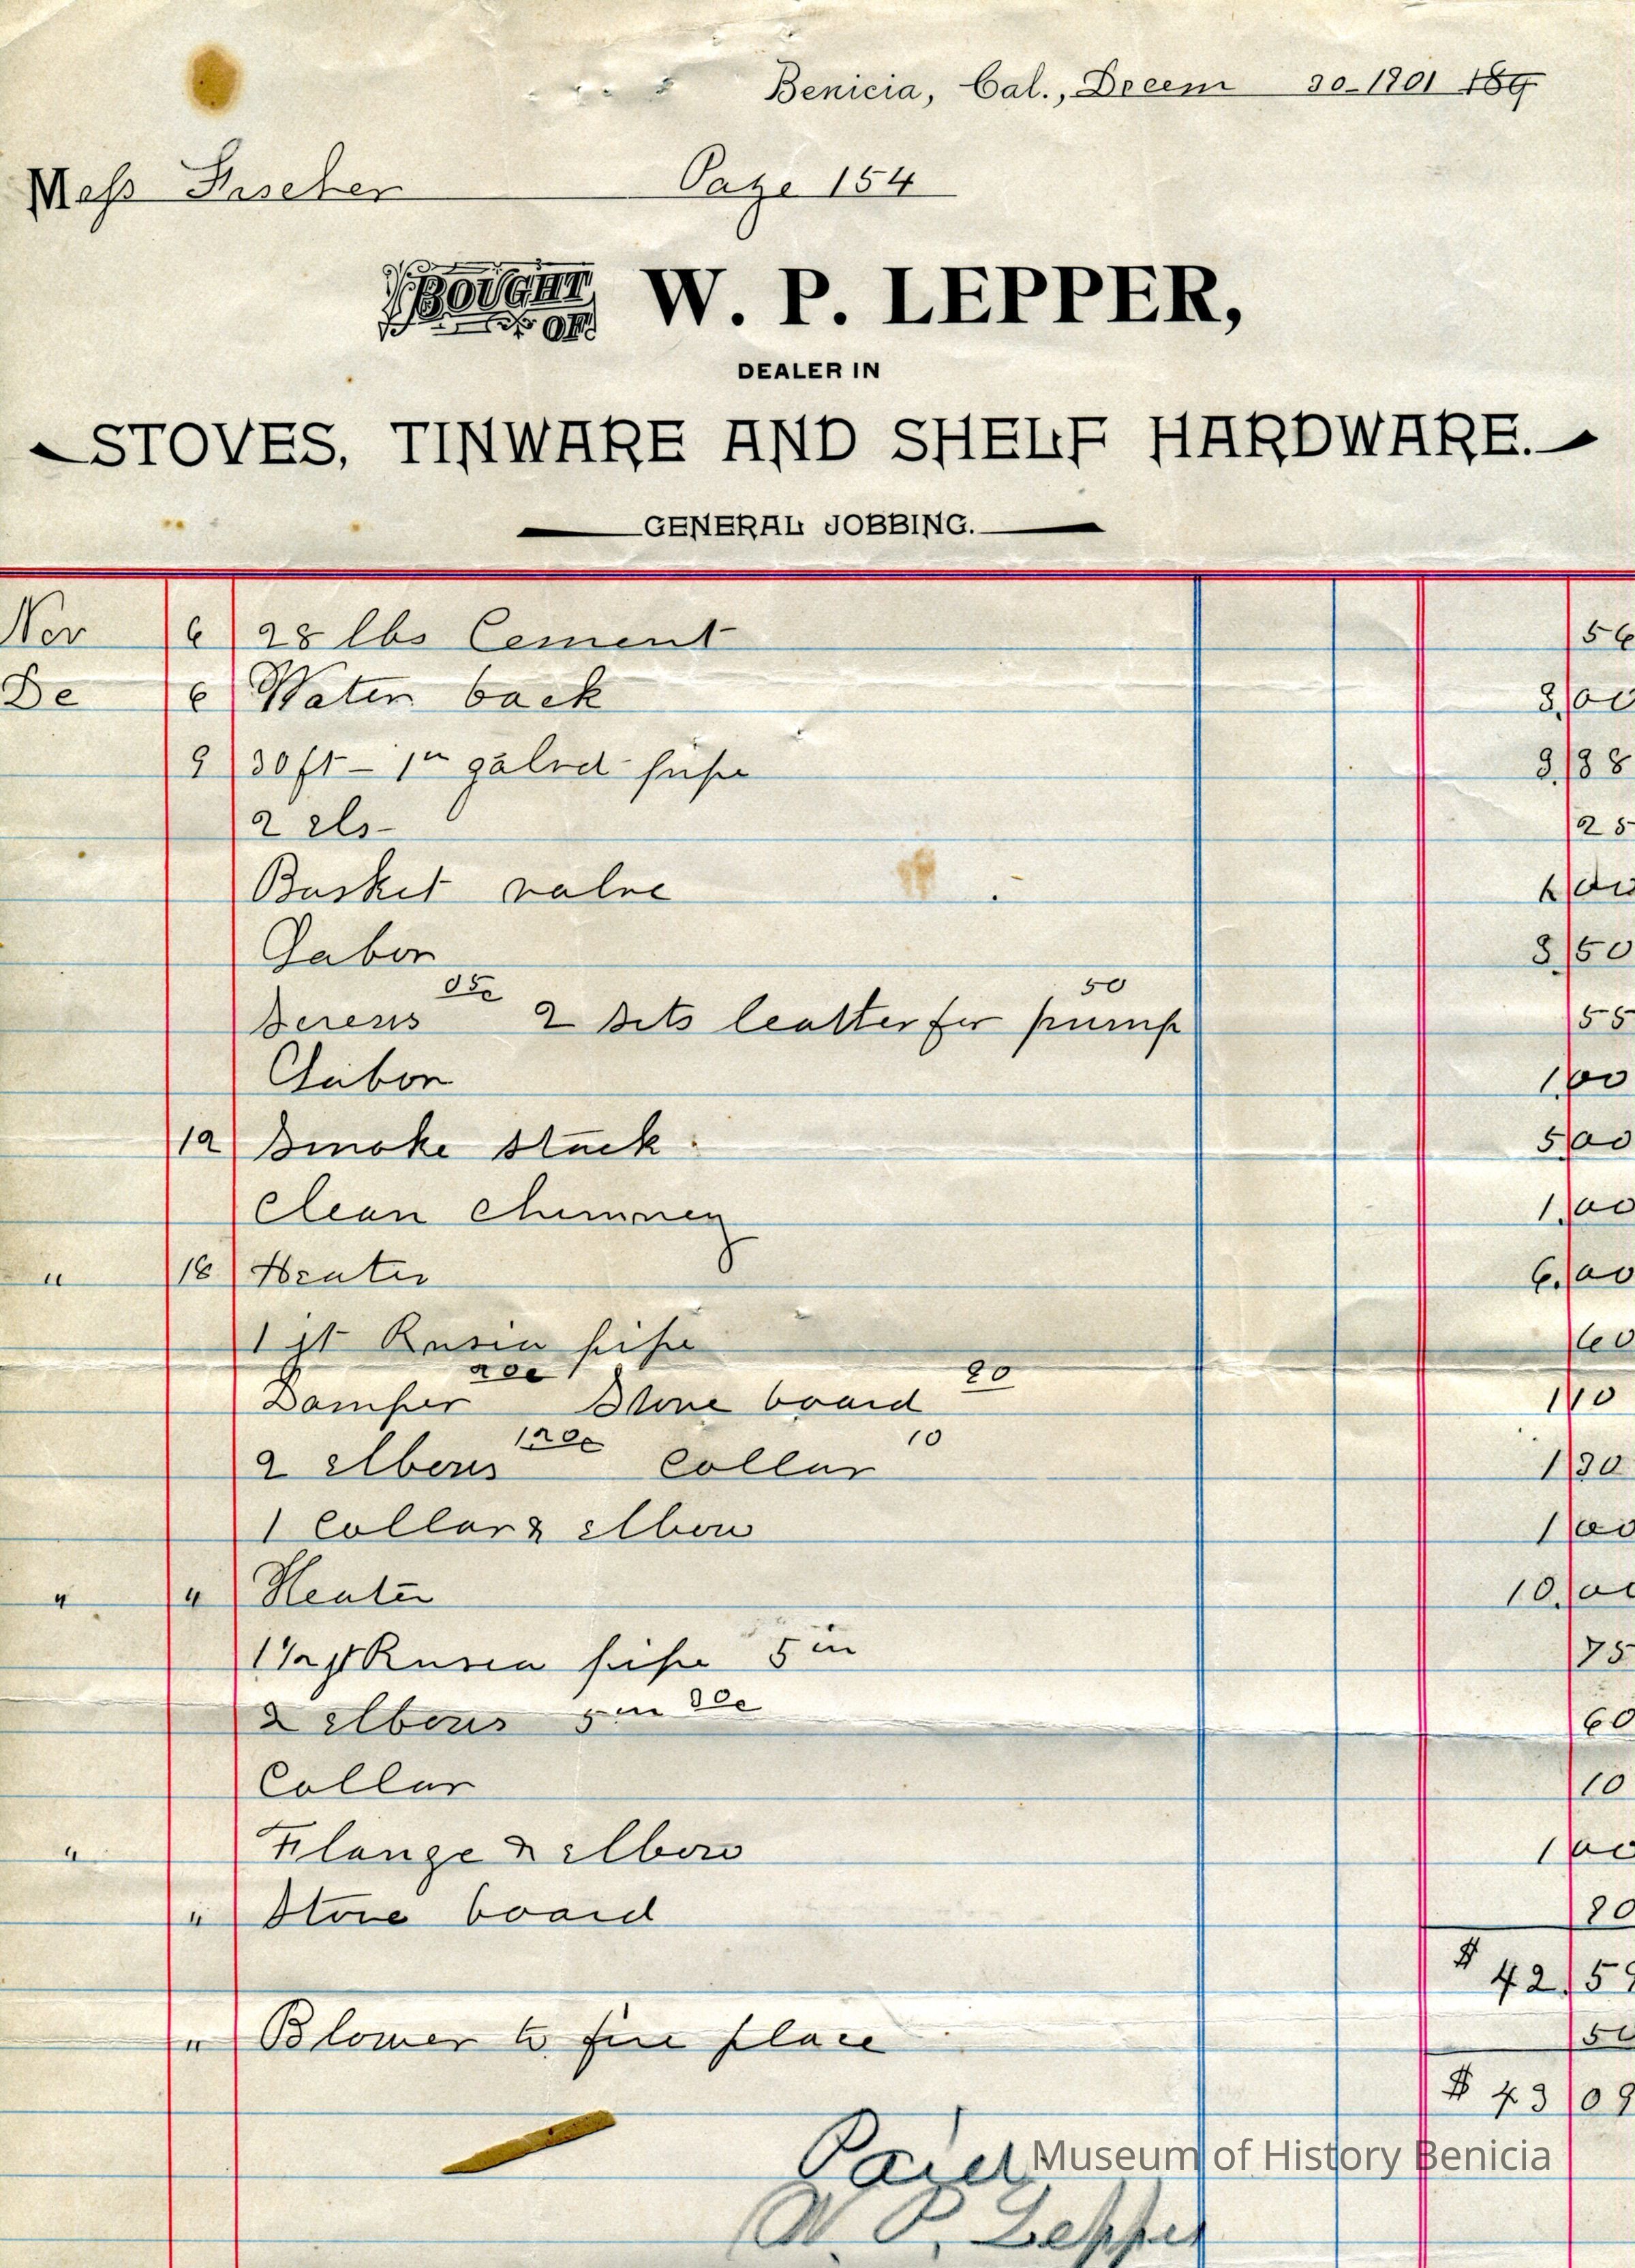 Benicia, Cal., Decem 30-1901 189
Mess Fischer Page 154
BOUGHT OF W. P. LEPPER,
DEALER IN
STOVES, TINWARE AND SHELF HARDWARE.
GENERAL JOBBING.
Nov 6 28 lbs Cement 56
De 6 Water back 3.00
9 30 ft - 1in galvd pipe 3.38
2 els 25
Basket valve 1.00
Labor 3.50
Screws 05c 2 sets leather for pump 50 55
Labor 1.00
12 Smoke stack 5.00
Clean chimney 1.00
" 18 Heater 6.00
1 jt Rusia pipe 60
Damper 20c Stove board 90 1 10
2 elbows 1.20c Collar 10 1 30
1 Collar & elbow 1 00
" " Heater 10.00
1 1/2 jt Rusia pipe 5 in 75
2 elbows 5 in 30c 60
Collar 10
" Flange & elbow 1 00
" Stove board 90
$ 42.59
" Blower to fire place 50
$ 43 09
Paid
W. P. Lepper
Museum of History Benicia